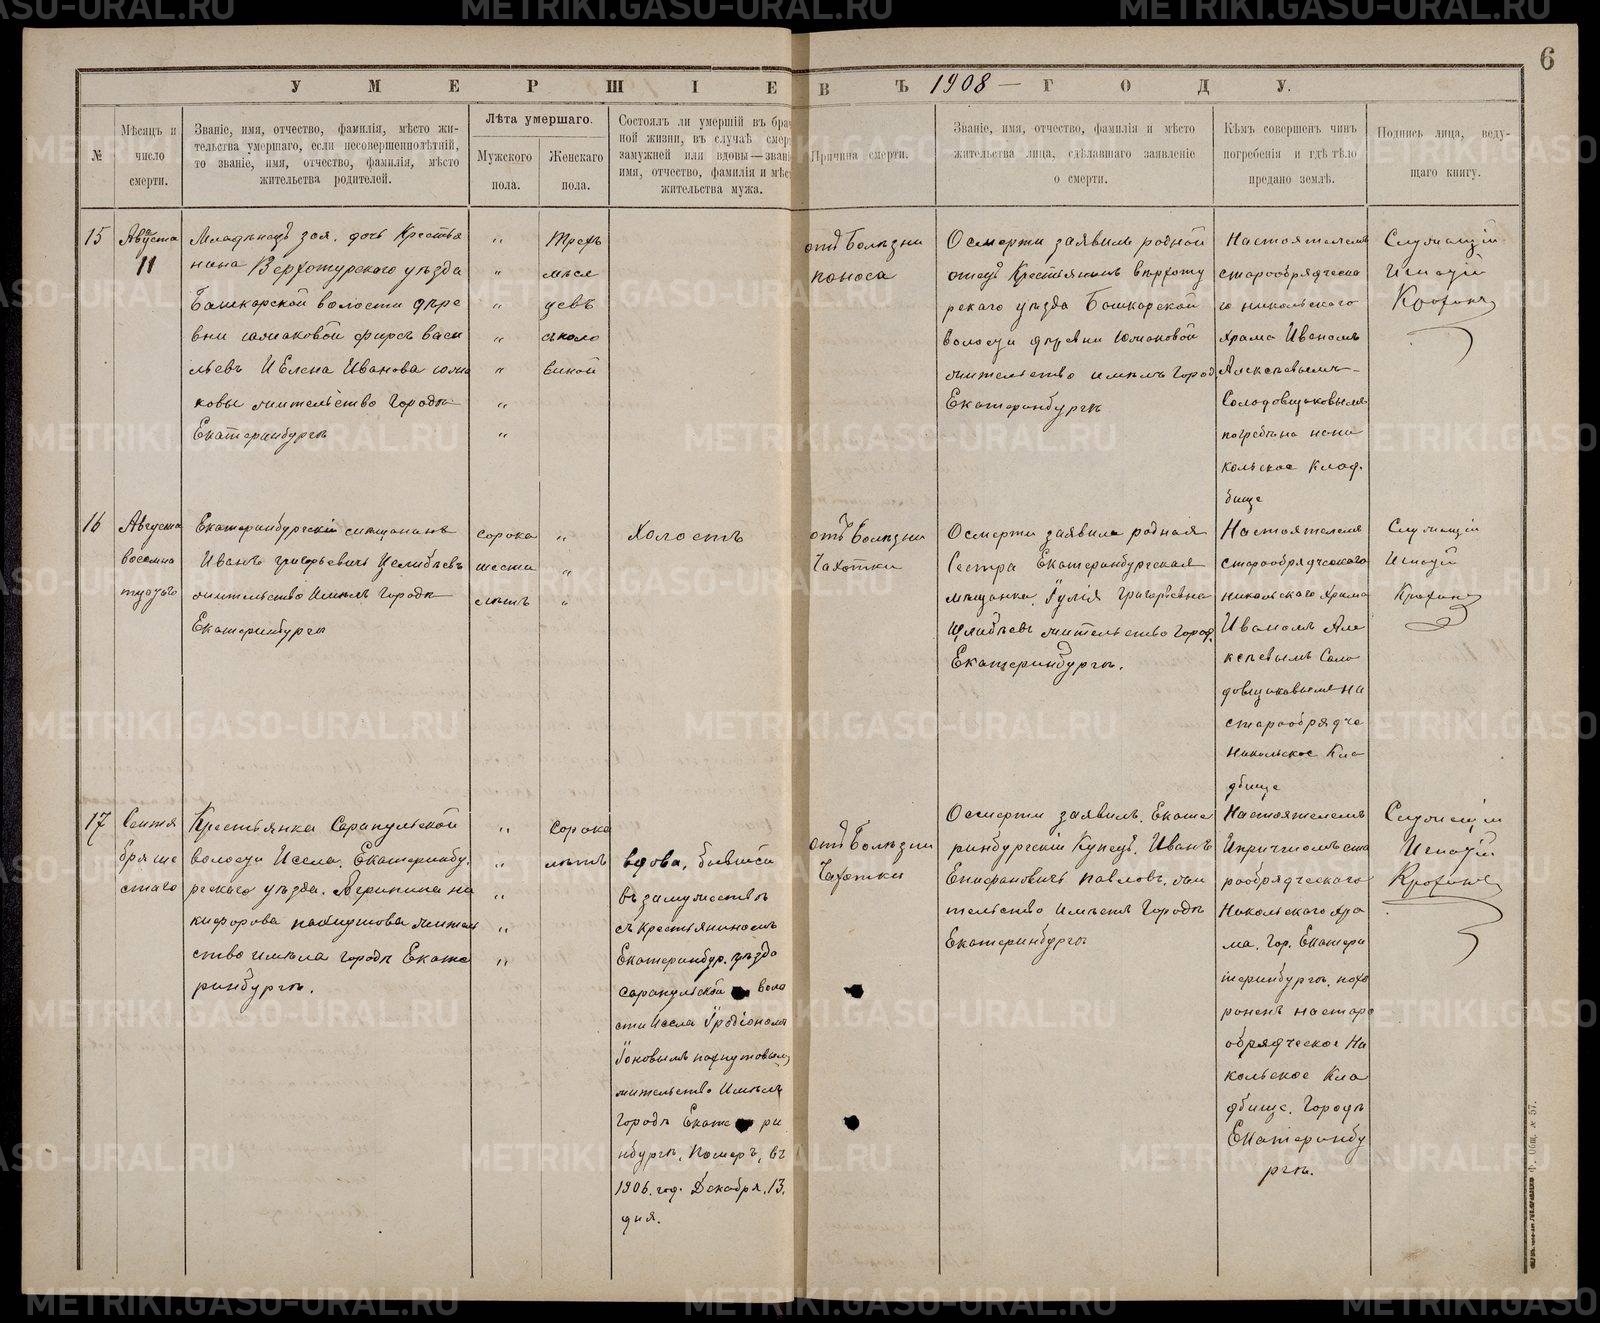 УМЕРШІЕ ВЪ 1908 — ГОДУ.
6
№
Мѣсяцъ и
число
смерти.
Званіе, имя, отчество, фамилія, мѣсто жи-
тельства умершаго, если несовершеннолѣтній,
то званіе, имя, отчество, фамилія, мѣсто
жительства родителей.
Лѣта умершаго.
Мужского
пола.
Женскаго
пола.
Состоялъ ли умершій въ брач
ной жизни, въ случаѣ смер
замужней или вдовы—звані
имя, отчество, фамилія и мѣс
жительства мужа.
Причина смерти.
Званіе, имя, отчество, фамилія и мѣсто
жительства лица, сдѣлавшаго заявленіе
о смерти.
Кѣмъ совершенъ чинъ
погребенія и гдѣ тѣло
предано землѣ.
Подпись лица, веду-
щаго книгу.
15
Августа
11
Младѣнецъ зоя. дочь Крестья
нина Верхотурскаго уѣзда
Башкарской волости дѣре
вни юмаковой фирсъ Васи
льевъ И Елена Иванова юма
ковы жительство Городѣ
Екатеринбургѣ
Трехъ
мѣся
цевъ
съполо
виной
отъ Болѣзни
поноса
Осмерти заявилъ родной
отецъ Крестьянинъ вѣрхоту
рскаго уѣзда Башкарской
волости дѣревни юмаковой
жительство имѣлъ Город
Екатеринбургѣ
Настоятелемъ
старообрядческа
го никольскаго
храма Иваномъ
Алексѣевымъ
Солодовщиковымъ
погребѣна нани
кольское Клад
бище
Служащій
Игнатій
Крохинъ
16
Августа
восемна
тцатаго
Екатеринбургскій мещанинъ
Иванъ григорьевичъ Щелибѣевъ
жительство Имѣлъ Городѣ
Екатеринбургѣ
сорока
шести
лѣтъ
Холостъ
отъ Болѣзни
Чахотки
Осмерти заявила родная
Сестра Екатеринбургская
мѣщанка. Гулія Григорьевна
жительство Город.
Екатеринбургѣ.
Настоятелемъ
старообрядческаго
никольскаго храма
Иваномъ Але
ксѣевымъ Соло
довщиковымъ на
старообрядче
Никольское Кла
дбище
Служащій
Игнатій
Крохинъ
17
Сентя
бря ше
стаго
Крестьянка Сарапульской
волости Исела. Екатеринбу.
ргскаго уѣзда. Агрипина на
кифорова пахутова жител
ство имѣла городѣ Екате
ринбургѣ.
Сорока
лѣтъ
вдова, бывшіи
въ замужествѣ
съ крестьяниномъ
Екатеринбур. уѣзда
сарапульской воло
сти Исела Іродіономъ
Іоновымъ пахутовым
жительство Имѣлъ
городѣ Екате ри
нбургѣ, Померъ, въ
1906. год. Декабря. 13.
дня.
отъ Болѣзни
Чахотки
Осмерти заявилъ. Екате
ринбургскій Купецъ. Иванъ
Епифановичъ павловъ. жи
тельство Имѣетъ Городѣ
Екатеринбургѣ
Настоятелемъ
Ипричтомъ ста
рообрядческаго
Никольскаго хра
ма. Гор. Екатери
теринбургѣ. похо
роненъ на старо
обрядческое Ни
кольское Кла
дбище. Городѣ
Екатеринбу
ргѣ.
Служащій
Игнатій
Крохинъ
Ф. Общ. № 57.
METRIKI.GASO-URAL.RU